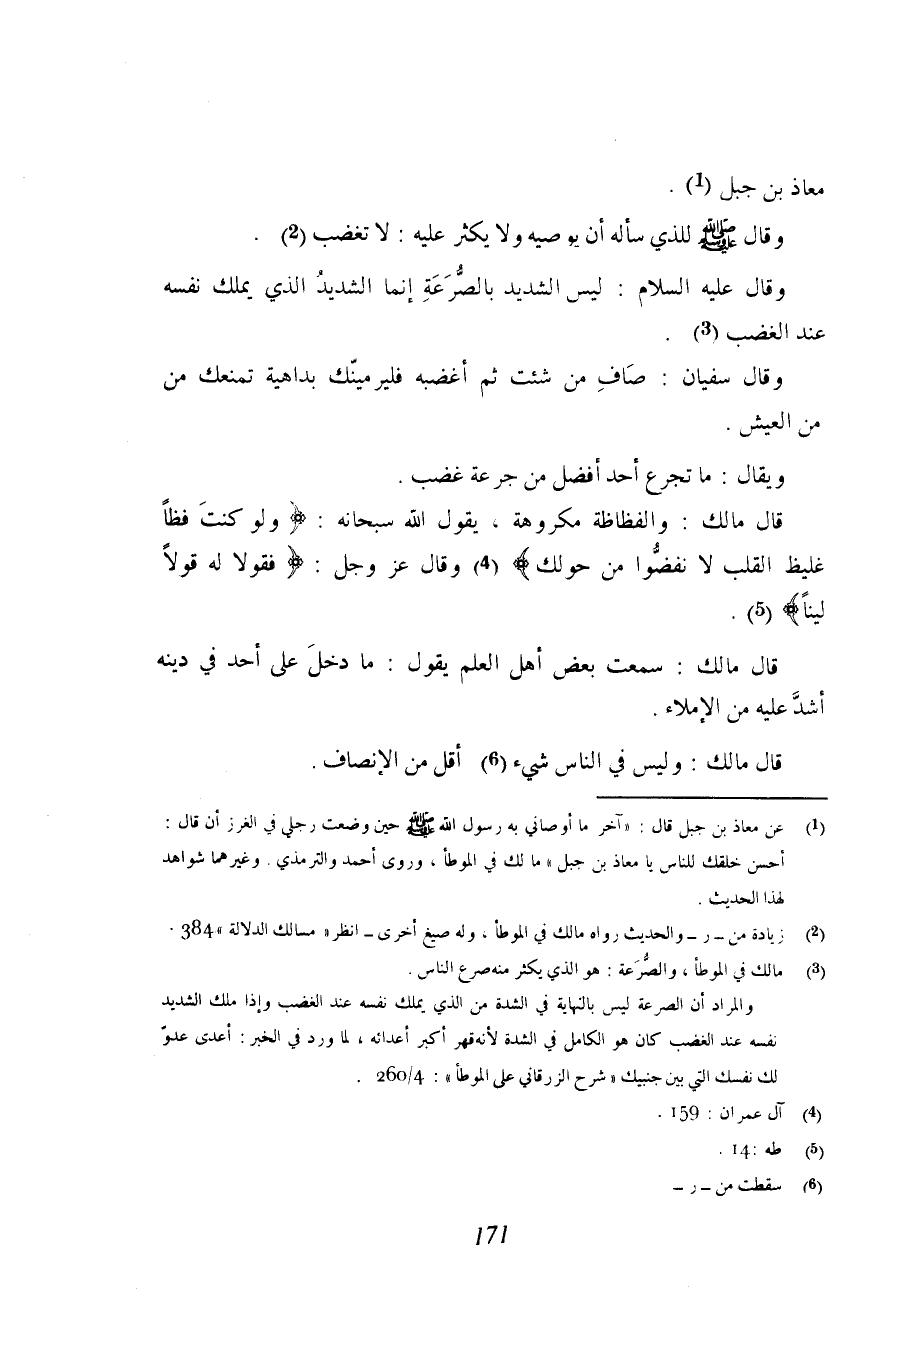 معاذ بن جبل (1) .
وقال ﷺ للذي سأله أن يوصيه ولا يكثر عليه : لا تغضب (2) .
وقال عليه السلام : ليس الشديد بالصُّرَعَةِ إنما الشديدُ الذي يملك نفسه
عند الغضب (3) .
وقال سفيان : صَافِ من شئت ثم أغضبه فليرمينّك بداهية تمنعك من
من العيش .
ويقال : ما تجرع أحد أفضل من جرعة غضب .
قال مالك : والفظاظة مكروهة ، يقول الله سبحانه : ﴿ ولو كنتَ فظاً
غليظ القلب لا نفضُّوا من حولك ﴾ (4) وقال عز وجل : ﴿ فقولا له قولاً
ليناً ﴾ (5) .
قال مالك : سمعت بعض أهل العلم يقول : ما دخلَ على أحد في دينه
أشدَّ عليه من الإملاء .
قال مالك : وليس في الناس شيء (6) أقل من الإنصاف .
(1) عن معاذ بن جبل قال : « آخر ما أوصاني به رسول الله ﷺ حين وضعت رجلي في الغرز أن قال :
أحسن خلقك للناس يا معاذ بن جبل » ما لك في الموطأ ، وروى أحمد والترمذي . وغيرهما شواهد
لهذا الحديث .
(2) زيادة من ــ ر ــ والحديث رواه مالك في الموطأ ، وله صيغ أخرى ــ انظر « مسالك الدلالة » 384 .
(3) مالك في الموطأ ، والصُّرَعة : هو الذي يكثر منه صرع الناس .
والمراد أن الصرعة ليس بالنهاية في الشدة من الذي يملك نفسه عند الغضب وإذا ملك الشديد
نفسه عند الغضب كان هو الكامل في الشدة لأنه قهر أكبر أعدائه ، لما ورد في الخبر : أعدى عدوّ
لك نفسك التي بين جنبيك « شرح الزرقاني على الموطأ » : 260/4 .
(4) آل عمران : 159 .
(5) طه : 14 .
(6) سقطت من ــ ر ــ
171